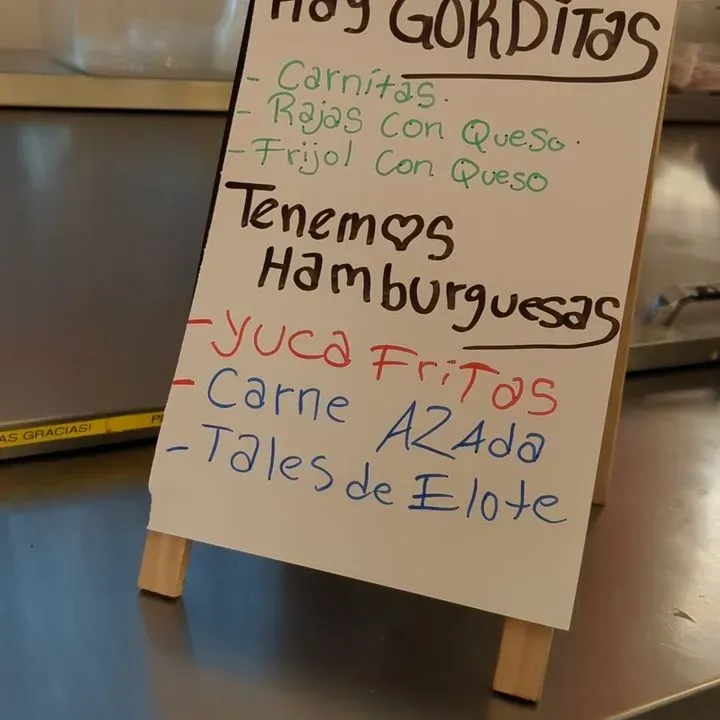 Hay GORDITAS
- Carnitas.
- Rajas con Queso.
- Frijol con Queso
Tenem♡s
Hamburguesas
- Yuca FriTas
- Carne AZAda
- Tales de Elote
AS GRACIAS!